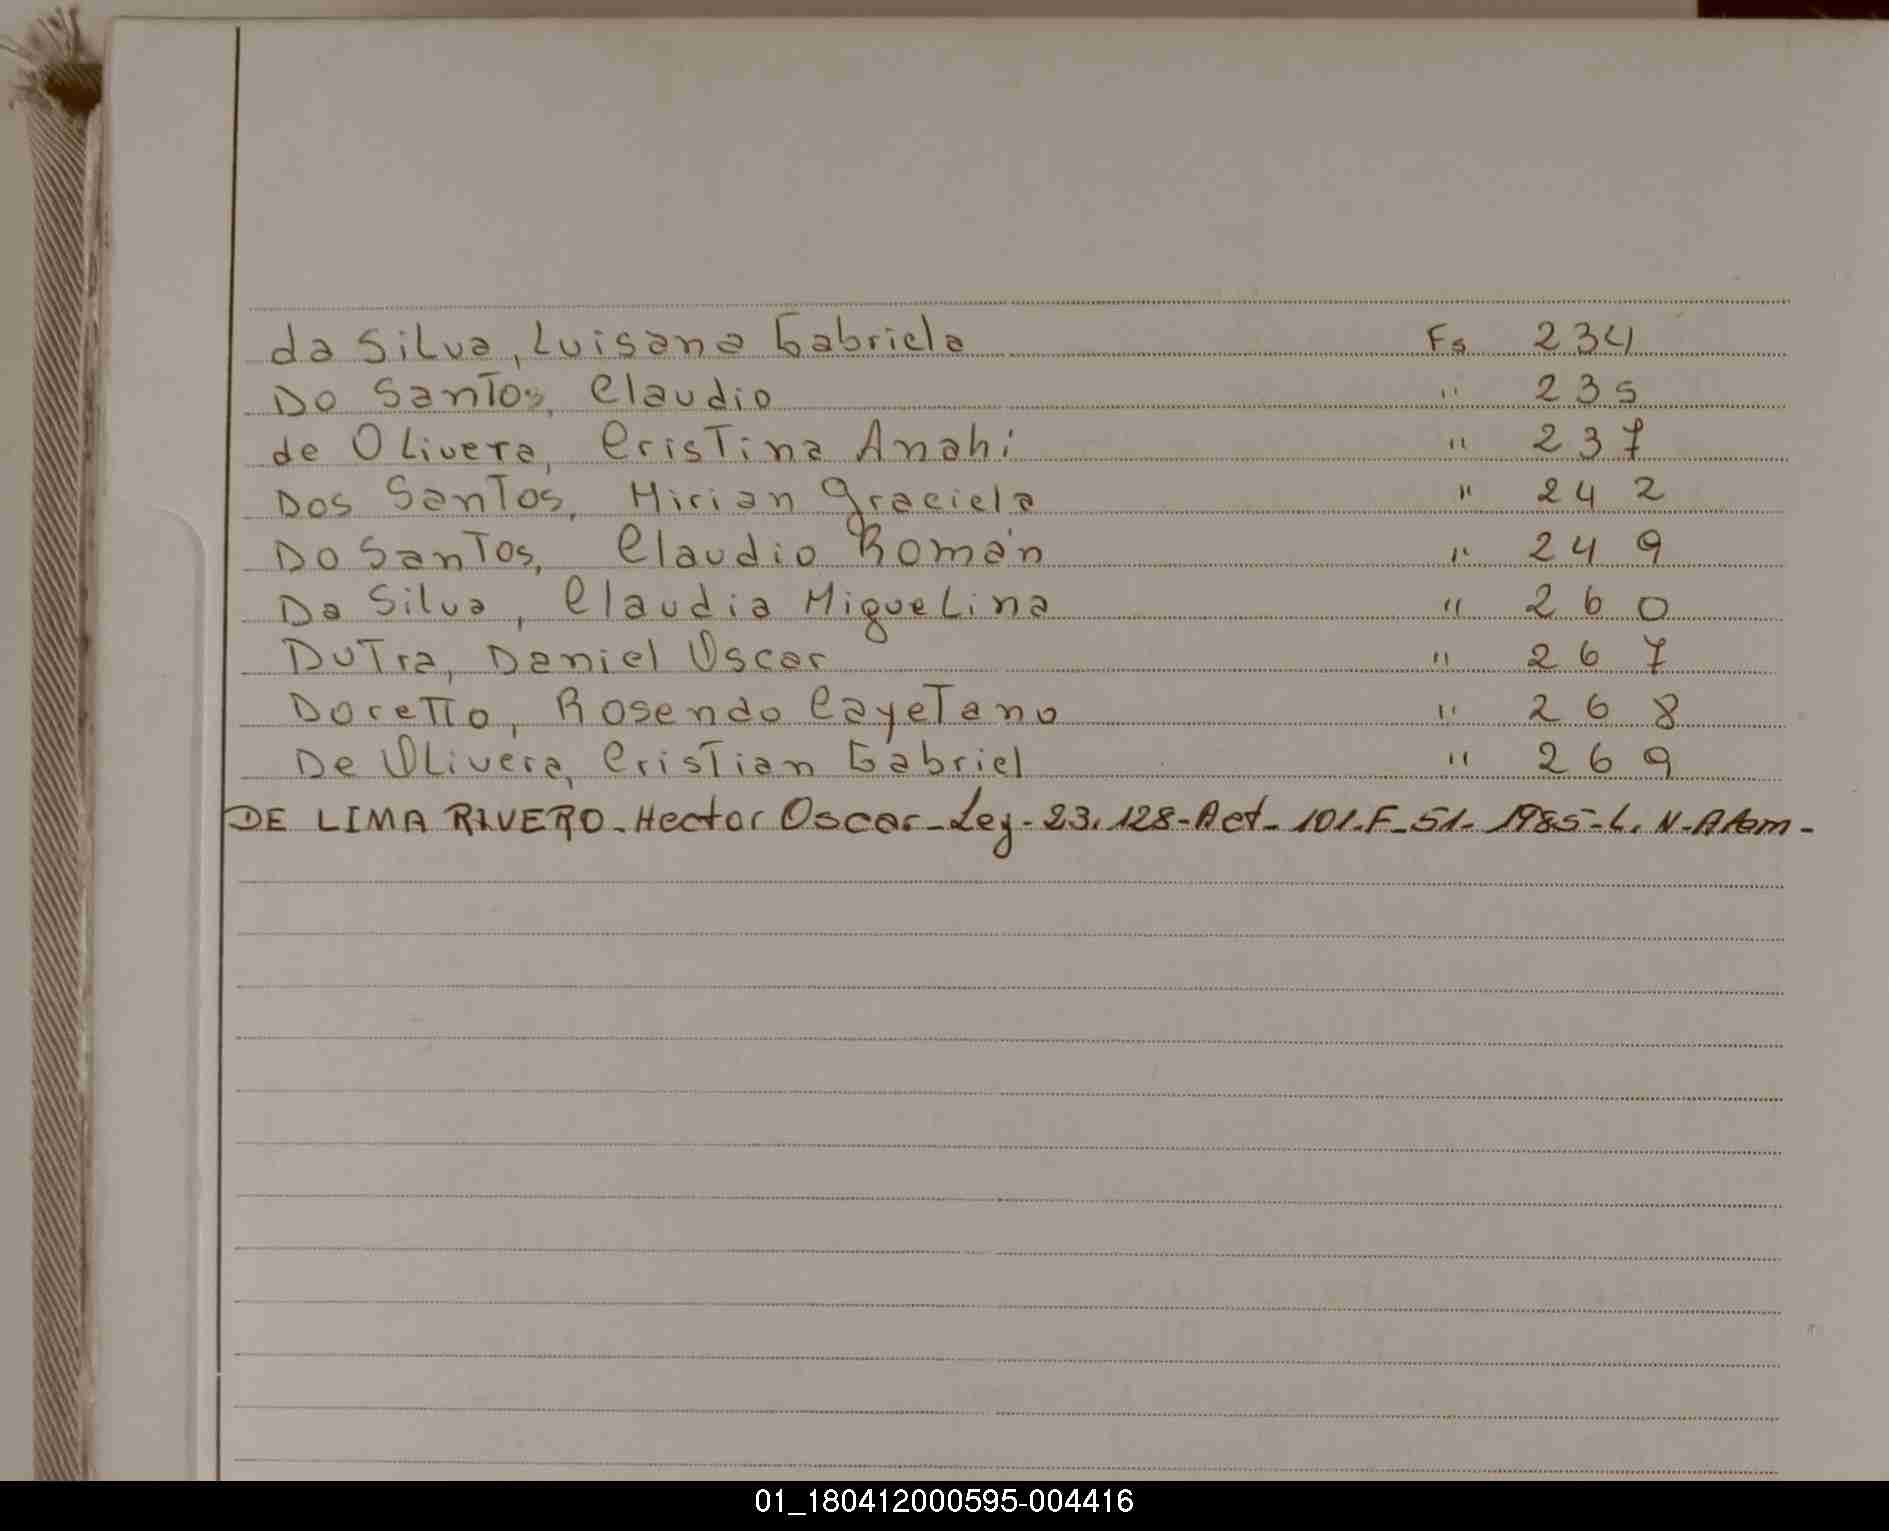 da Silva, Luisana Gabriela Fs 234
Do Santos, Claudio " 235
de Olivera, Cristina Anahi " 237
Dos Santos, Mirian Graciela " 242
Do Santos, Claudio Román " 249
Da Silva, Claudia Miguelina " 260
Dutra, Daniel Oscar " 267
Doretto, Rosendo Cayetano " 268
De Olivera, Cristian Gabriel " 269
DE LIMA RIVERO - Hector Oscar - Ley - 23.128 - Act - 101 - F - 51 - 1985 - L. N. Alem -
01_180412000595-004416